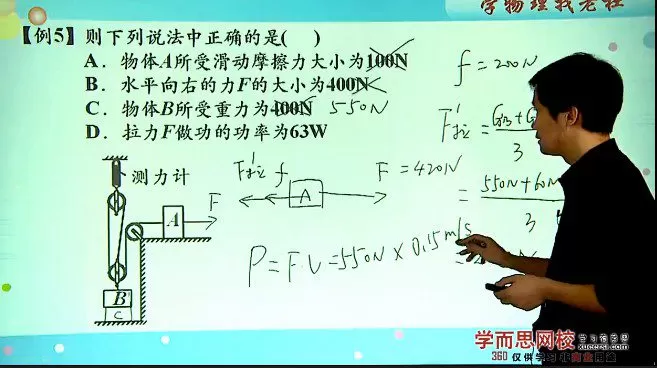 学物理找老杜
【例5】则下列说法中正确的是( )
A．物体A所受滑动摩擦力大小为100N
B．水平向右的力F的大小为400N
C．物体B所受重力为400N 550N
D．拉力F做功的功率为63W
f = 200N
F拉' =
3
= 550N+60N
3
F拉' f A F = 420N
P = F·V = 550N × 0.15 m/s
测力计
A F
B
C
学而思网校 学习有意思
xueersi.com
360 仅供学习 非商业用途